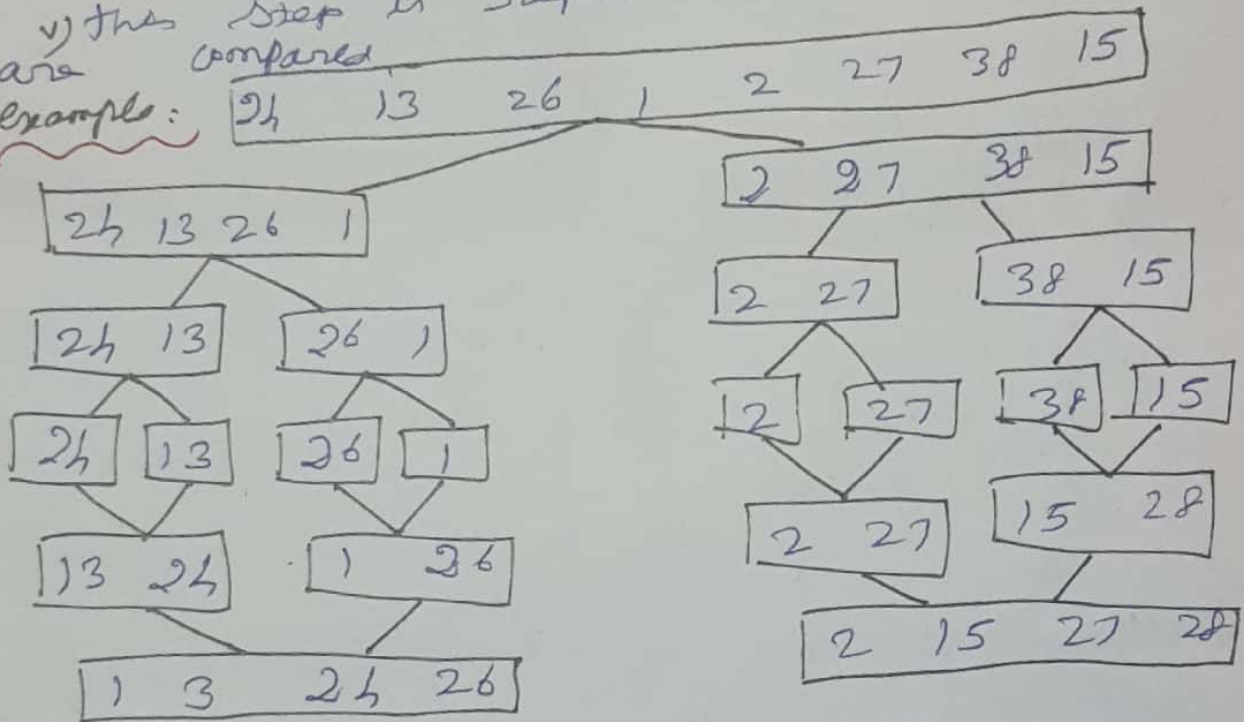 v) this step is
are compared
example: 24 13 26 1 2 27 38 15
24 13 26 1 2 27 38 15
24 13 26 1 2 27 38 15
24 13 26 1 2 27 38 15
13 24 1 26 2 27 15 28
1 3 24 26 2 15 27 28